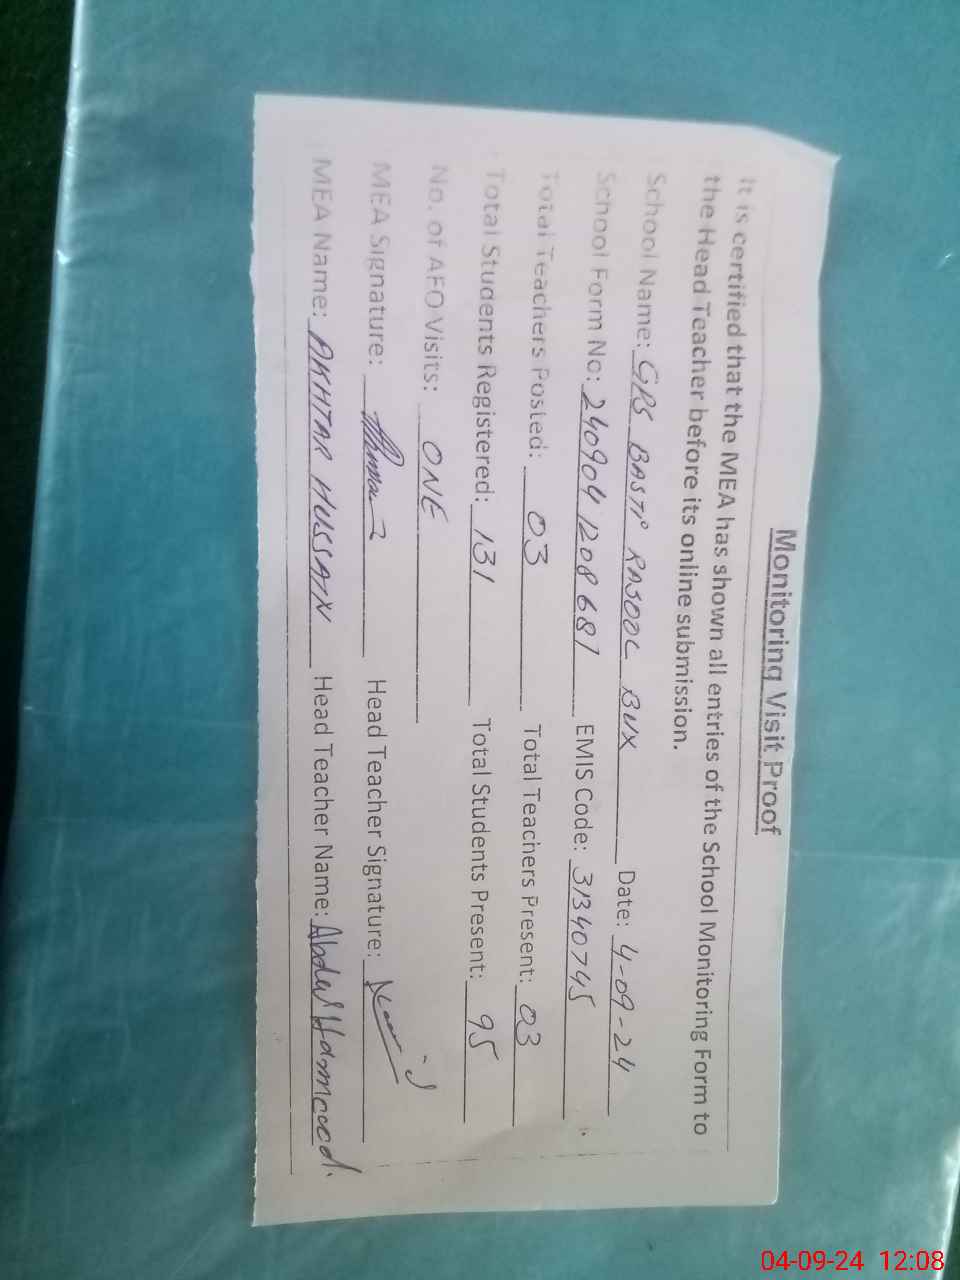 Monitoring Visit Proof
It is certified that the MEA has shown all entries of the School Monitoring Form to
the Head Teacher before its online submission.
School Name: GPS BASTI RASOOL BUX Date: 4-09-24
School Form No: 2409041208681 EMIS Code: 31340745
Total Teachers Posted: 03 Total Teachers Present: 03
Total Students Registered: 131 Total Students Present: 95
No. of AEO Visits: ONE
MEA Signature: Head Teacher Signature:
MEA Name: AKHTAR HUSSAIN Head Teacher Name: Abdul Hameed.
04-09-24 12:08